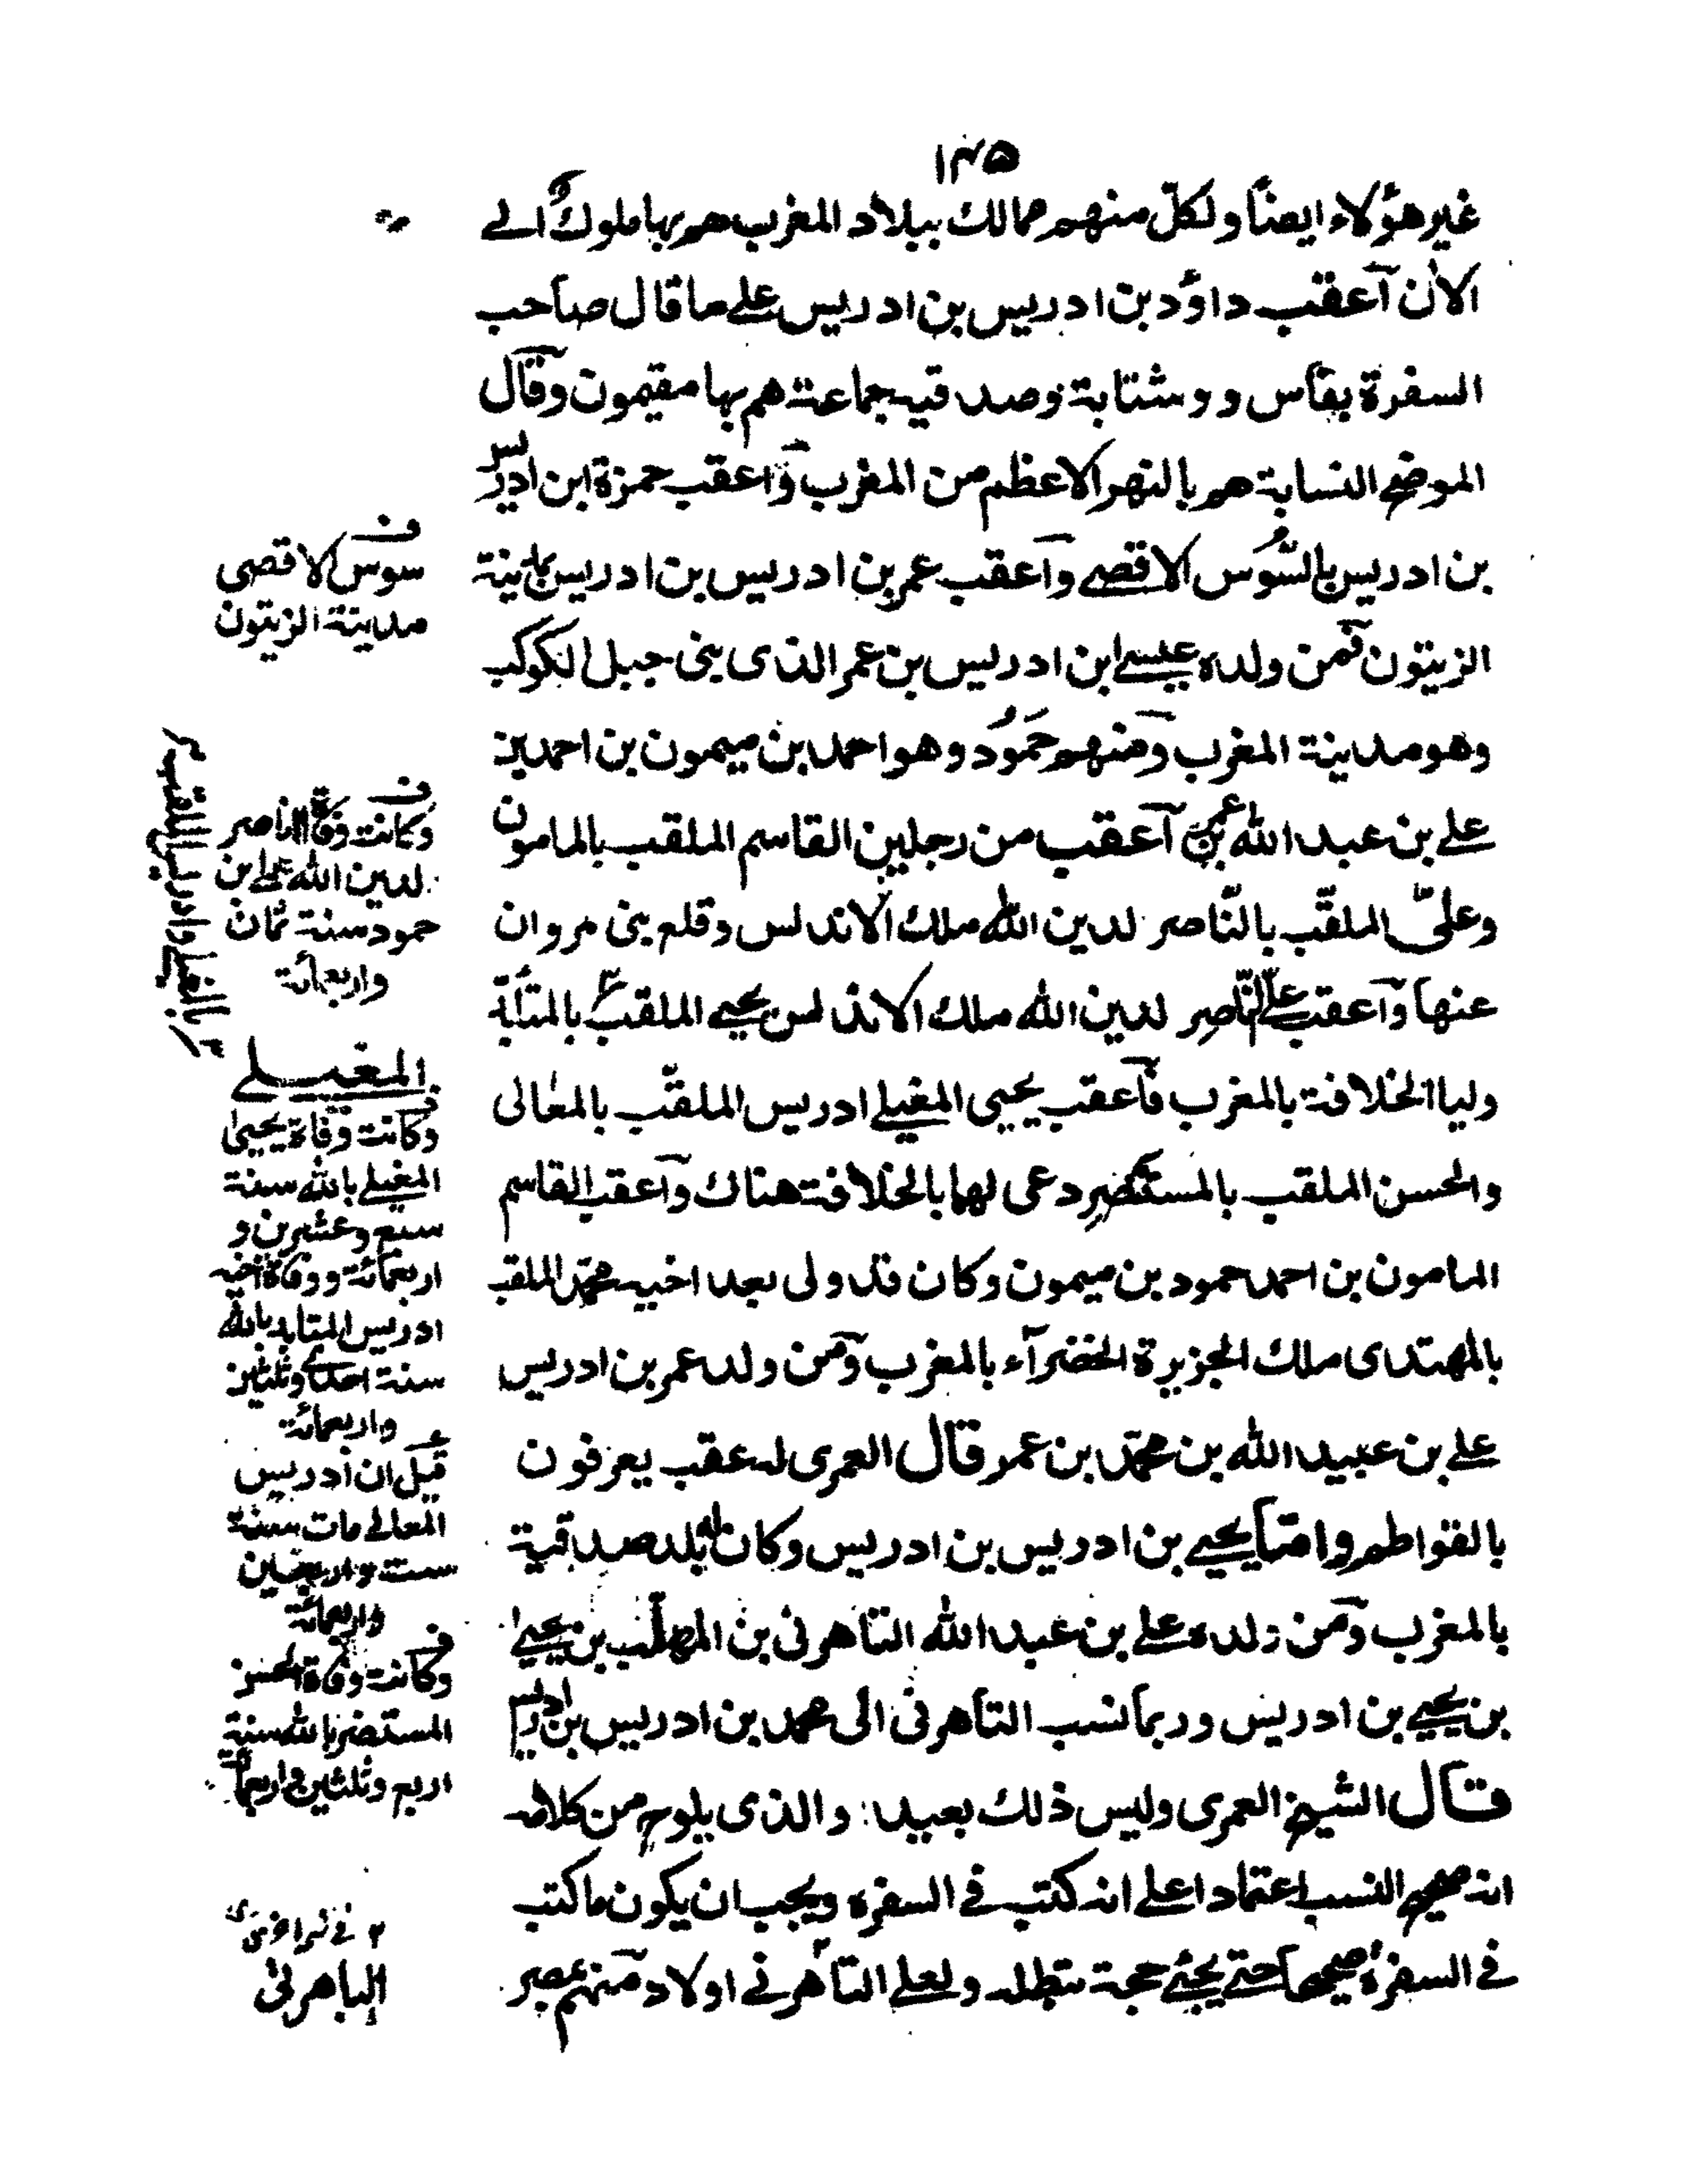 ١٤٥
غير هؤلاء ايضاً ولكلّ منهم ممالك ببلاد المغرب هم بها ملوكٌ الے
الاٰن آعقب داؤد بن ادريس بن ادريس علے ما قال صاحب
السفرة بفاس و وشتابة وصدقيه جماعة هم بها مقيمون وقال
الموضح النسابة هم بالنهر الاعظم من المغرب وآعقب حمزة ابن ادريس
بن ادريس بالسُّوس الاقصے وآعقب عمر بن ادريس بن ادريس بمدينة
الزيتون فمن ولده عيسے ابن ادريس بن عمر الذى بنى جبل الكوكب
وهو مدينة المغرب ومنهم حَمُود وهو احمد بن ميمون بن احمد بن
علے بن عبد الله بن عمر آعقب من رجلين القاسم الملقب بالمامون
وعلىّ الملقّب بالنّاصر لدين الله ملك الاندلس وقلع بنى مروان
عنها وآعقب علے النّاصر لدين الله ملك الاندلس يحيے الملقب
وليا الخلافة بالمغرب فآعقب يحيى المغيلے ادريس الملقّب بالمعالى
والحسن الملقب بالمستنصر دعى لهما بالخلافة هناك وآعقب القاسم
المامون بن احمد حمود بن ميمون وكان قد ولى بعد اخيه محمّد الملقب
بالمهتدى ملك الجزيرة الخضرآء بالمغرب ومن ولد عمر بن ادريس
علے بن عبيد الله بن محمّد بن عمر قال العمرى له عقب يعرفون
بالفواطم وامّا يحيے بن ادريس بن ادريس وكان له بلد صدقية
بالمغرب ومن ولده علے بن عبد الله التاهرتى بن المهلّب بن يحيےٰ
بن يحيے بن ادريس وربما نسب التاهرتى الى محمد بن ادريس بن ادريس
قال الشيخ العمرى وليس ذلك بعيد: والذى يلوح من كلامه
انه صحيح النسب اعتمادا علے انه كتب فے السفره ويجب ان يكون ما كتب
فے السفرة صحيحا حتے يجئے حجة تبطله ولعلے التاهرتے اولاد منهم بمصر
ف
سوس الاقصى
مدينة الزيتون
ف
وكانت وفاة الناصر
لدين الله علے بن
حمود سنة ثمان
واربعمائة
المغيــلے
ف
وكانت وفاة يحيىٰ
المغيلے بالله سنة
سبع وعشرين و
اربعمائة ووفاة اخيه
ادريس المتايد بالله
سنة احدى وثلثين
واربعمائة
قيل ان ادريس
المعالے مات سنة
ست واربعين
واربعمائة
ف
وكانت وفاة الحسن
المستنصر بالله سنة
اربع وثلثين واربعمائة
٢ فے اخرى
الباهرتى